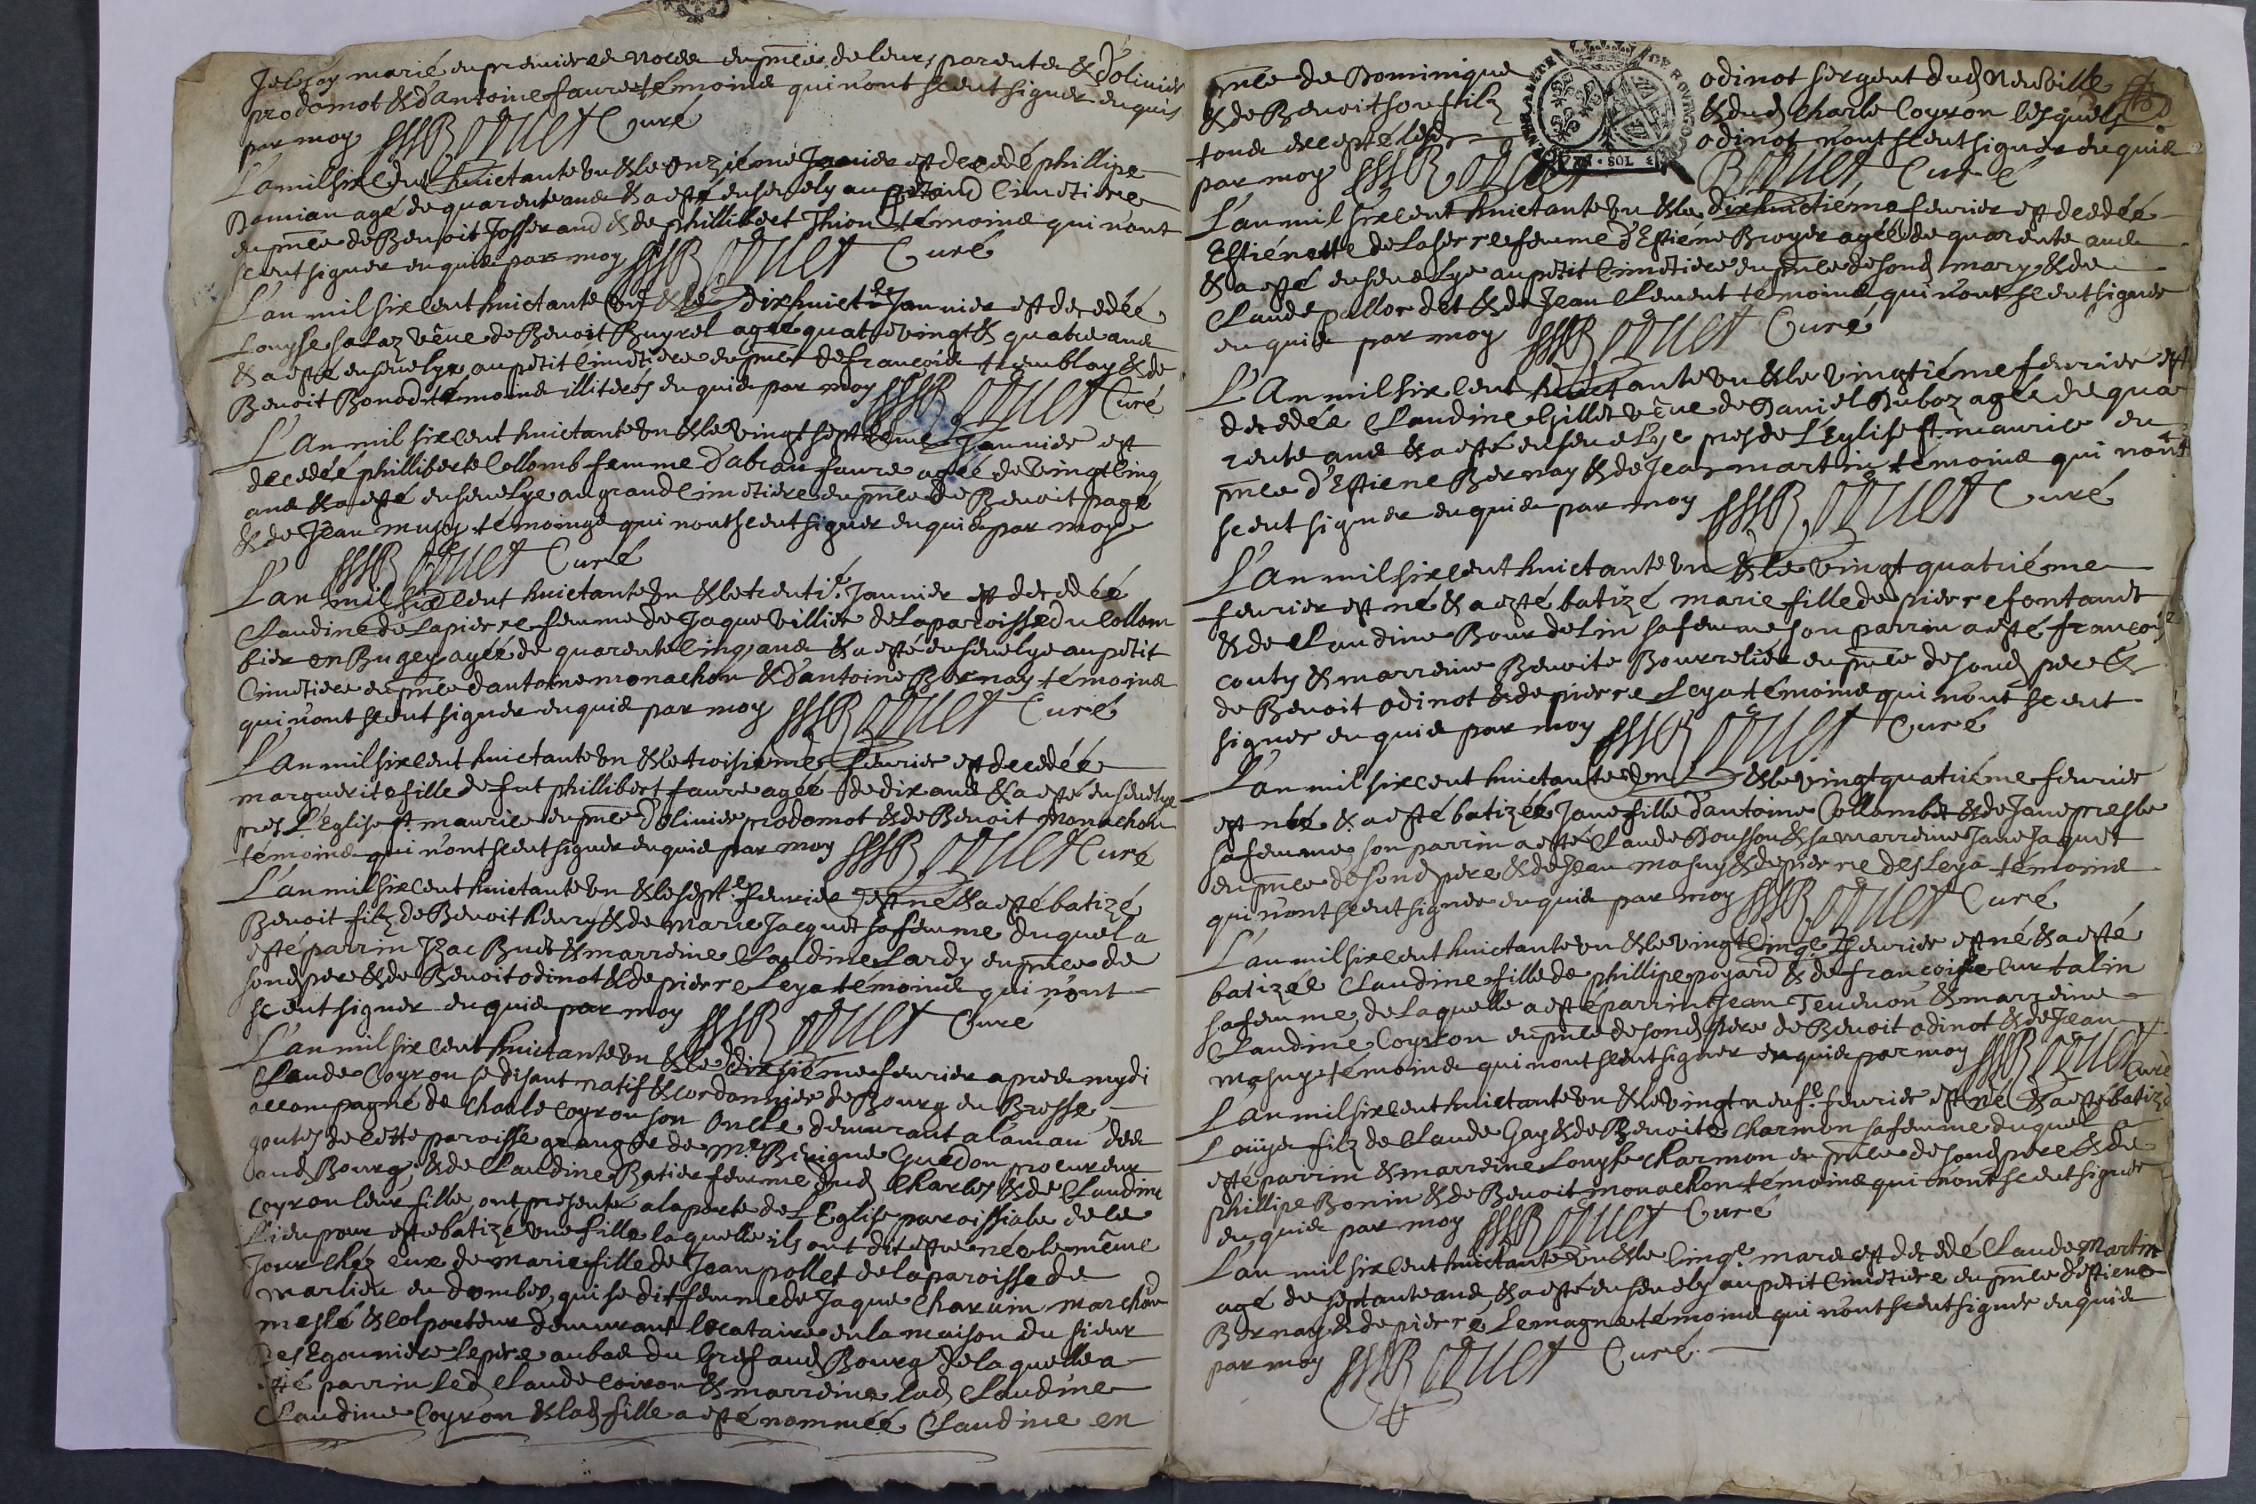 Je les ay marié en premiere noces en pnce de leurs parents & d'olivier
prodomot & d'antoine faure témoins qui n'ont sceut signer enquis
par moy Bozuet Curé
L'a mil six cent huictante un & le onziéme Janvier est decedé phillipe
Damian agé de quarente ans & a esté ensevely au grand Cimetiere
en pnce de Benoit Josserand & de phillibert Thion témoins qui n'ont
sceut signer enquis par moy Bozuet Curé
L'an mil six cent huictante un & le dix huict.e Janvier est decedéé
Louyse salaz veue de Benoit Buyret agée quatre vingt & quatre ans
& a esté ensevelye au petit Cimetiere en pnce de françois tremblay & de
Benoit Bonod témoins illiterés enquis par moy Bozuet Curé
L'An mil six cent huictante un & le vingt septieme Janvier est
decedéé phillibete Collomb femme d'abrau faure agée de vingt cinq
ans & a esté ensevelye au grand Cimetiere en pnce de Benoit page
& de Jean musy témoings qui nont sceut signer enquis par moy
Bozuet Curé
L'an mil six cent huictante un & le trenti.e Janvier est decedéé
Claudine de Lapierre femme de Jaque Villier de la paroisse du Collom
bier en Bugey agéé de quarente cinq ans & a esté ensevelye au petit
Cimetiere en pnce d'antoine monachon & d'antoine Bernay témoins
qui n'ont sceut signer enquis par moy Bozuet Curé
L'An mil six cent huictante un & le troisieme fevrier est decedéé
marguerite fille de fut phillibert faure agéé de dix ans & a esté ensevelye
pres L'Eglise st. maurice en pnce d'olivier prodomot & de Benoit monachon
témoins qui n'ont sceut signer enquis par moy Bozuet Curé
L'an mil six cent huictante un & le sept.e fevrier est né & a esté batizé
Benoit filz de Benoit heury & de marie Jacquet sa femme duquel a
esté parrin Izac Buet & marreine Claudine Lardy en pnce de
sond pere & de Benoit odinot & de pierre Leya témoins qui n'ont
sceut signer enquis par moy Bozuet Curé
L'an mil six cent huictante un & le dixsiéme fevrier apres mydi
Claude Coyron se disant natif & cordonnier de Bourg en Bresse
accompagné de Charle coyron son oncle demurant a l'aman des
goutes de cette paroisse granger de mr. Benigne Guédon procureur
aud Bourg, & de Claudine Batier femme dud Charles & de Claudine
coyron leur fille, ont presenté a la porte de L'Eglise paroissiale de ce
Lieu pour estre batizé une fille laquelle ils ont dit estre née le même
jour chéz eux de marie fille de Jean pollet de la paroisse de
marlieu en dombes, qui se dit femme de Jaque Charvin marchan
meslé & colporteur demurant locataire en la maison du sieur
Des Egouniere le pere au bas du Gref aud Bourg de laquelle a
esté parrin Led Claude Coiron & marreine lad Claudine
Claudine Coyron & lad fille a esté nommée Claudine en
pnce de Dominique odinot sergent dud Neuville
& de Benoit son filz & dud Charle Coyron lesquels
tous excepté lesd odinot n'ont sceut signer enquis
par moy Bozuet Bozuet Curé
L'an mil six cent huictante un & le dix huictiéme fevrier est decedéé
Estiénette de Laserre femme d'Estiéne Broyer agéé de quarente ans
& a esté ensevelye au petit Cimetiere en pnce de sond mary & de
Claude pallordet & de Jean Clement témoins qui n'ont sceut signer
enquis par moy Bozuet Curé
L'An mil six cent huictante un & le vingtiéme fevrier est
decedéé Claudine Gillet veue de Daniel Duboz agéé de qua
rente ans & a esté ensevelye pres de L'Eglise st. maurice en
pnce d'Estiene Bernay & de Jean martin témoins qui n'ont
sceut signer enquis par moy Bozuet Curé
L'An mil six cent huictante un & le vingt quatriéme
fevrier est né & a esté batizé marie fille de pierre fontanet
& de Claudine Bourdelin sa femme, son parrin a esté françois
couty & marreine Benoite Bourrelier en pnce de sond pere &
de Benoit odinot & de pierre Leya témoins qui n'ont sceut
signer enquis par moy Bozuet Curé
L'an mil six cent huictante un & le vingt quatriéme fevrier
est née & a esté batizéé Jane fille d'antoine Collombet & de Jane presle
sa femme son parrin a esté Claude Dousson & sa marreine Jane Jaquet
en pnce de sond pere & de Jean masuy & de pierre des Leya témoins
qui n'ont sceut signer enquis par moy Bozuet Curé
L'an mil six cent huictante un & le vingt cinq.e fevrier est né & a esté
batizéé Claudine fille de phillipe poyard & de françoise Curtalin
sa femme, de laquelle a esté parrin Jean Tenenon & marreine
Claudine Coyron en pnce de sond pere de Benoit odinot & de Jean
masuy témoins qui n'ont sceut signer enquis par moy Bozuet Curé
L'an mil six cent huictante un & le vingt neuf.e fevrier est né & a esté batizé
Loüys filz de Claude Gay & de Benoite Charmon sa femme duquel a
esté parrin & marreine Louyse Charmon en pnce de sond pere & de
phillipe Bonin & de Benoit monachon témoins qui n'ont sceut signer
enquis par moy Bozuet Curé
L'an mil six cent huictante un & le cinq.e mars est decedé Claude Martin
agé de septante ans, & a esté ensevely au petit Cimetiere en pnce d'Estiene
Bernay & de pierre Lemagne témoins qui n'ont sceut signer enquis
par moy Bozuet Curé